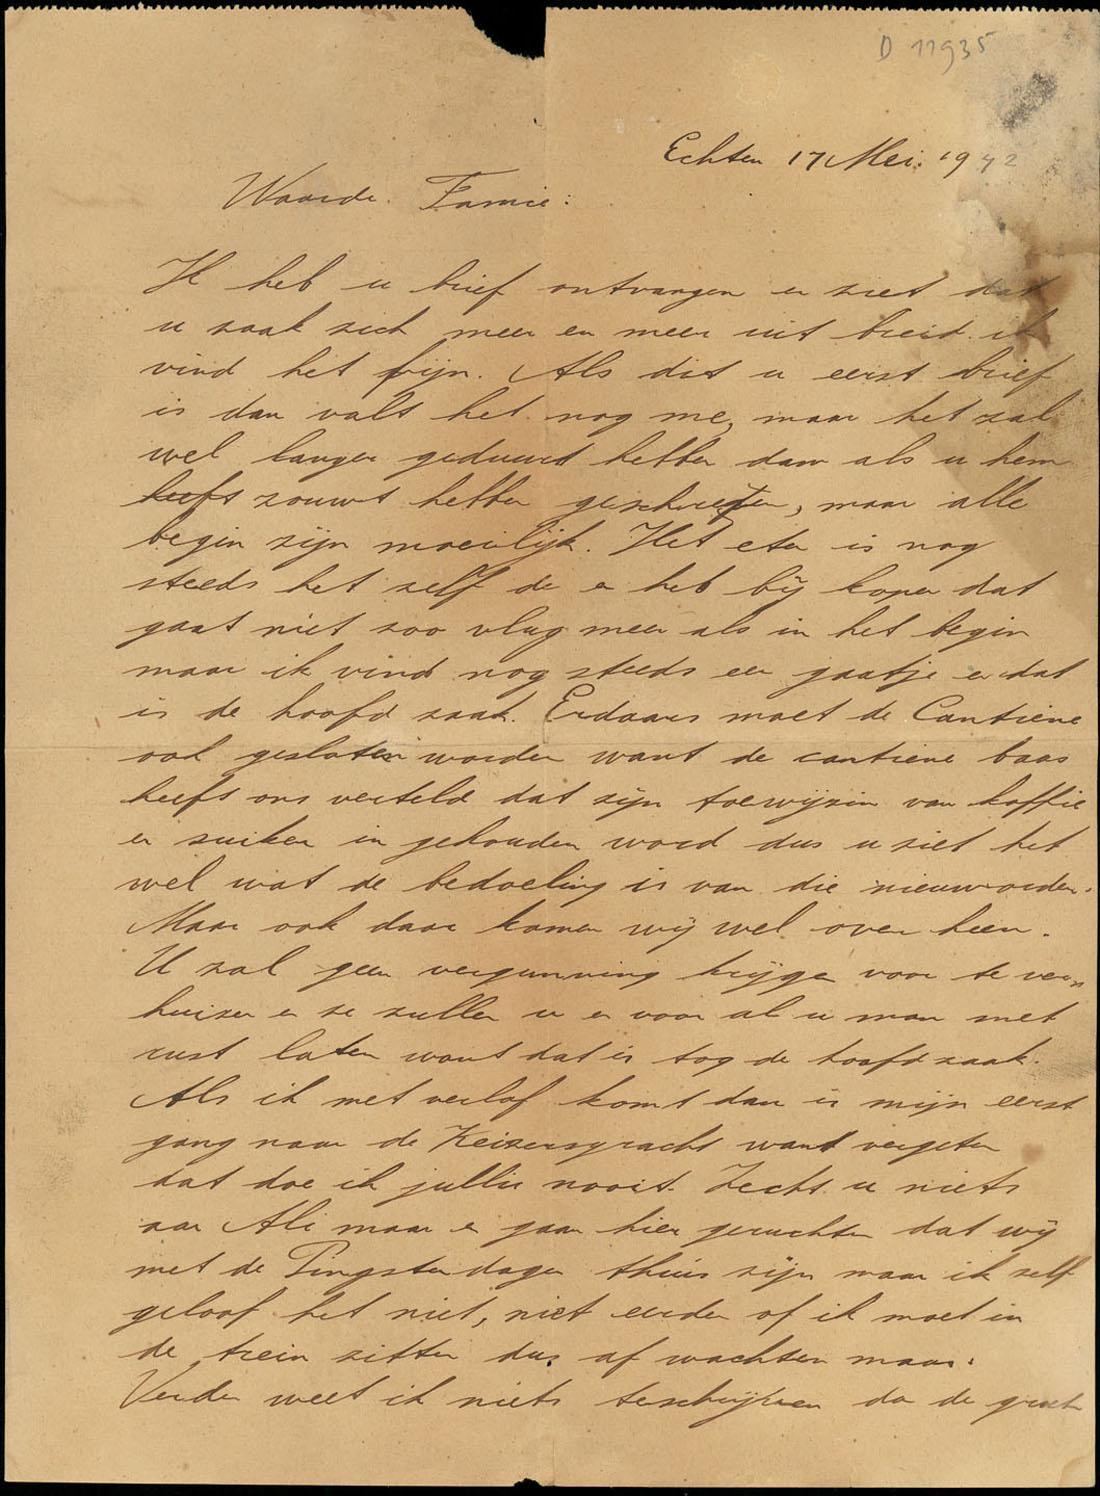 D 11935
Echten 17 Mei. 1942
Waarde. Famie:
Ik heb u brief ontvangen en ziet dat
u zaak zich meer en meer uit breid. ik
vind het fijn. Als dit u eerst brief
is dan valt het nog me, maar het zal
wel langer geduurd hebben dan als u hem
heeft zouwt hebben geschreefen, maar alle
begin zijn moeilijk. Het eten is nog
steeds het zelf de en heb bij kopen dat
gaat niet zoo vlug meer als in het begin
maar ik vind nog steeds een gaatje en dat
is de hoofd zaak. Erdaars moet de Cantiene
ook gesloten worden want de cantiene baas
heeft ons verteld dat zijn toewijzin van koffie
en suiker in gehouden word dus u ziet het
wel wat de bedoeling is van die nieuworden.
Maar ook daar komen wij wel over heen.
U zal geen vergunning krijgen voor te ver-
huizen en ze zullen u en voor al u man met
rust laten want dat is tog de hoofd zaak.
Als ik met verlof komt dan is mijn eerst
gang naar de Keizersgracht want vergeten
dat doe ik jullie nooit. Zecht u niets
aan Ali maar er gaan hier geruchten dat wij
met de Pingsterdagen thuis zijn maar ik zelf
geloof het niet, niet eerder of ik moet in
de trein zitten dus af wachten maar.
Verder weet ik niets teschrijven dan de groet